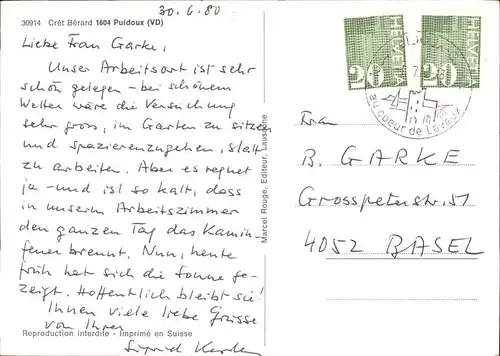 30.6.80
30914 Crêt Bérard 1604 Puidoux (VD)
Liebe Frau Garke,
Unser Arbeitsort ist sehr
schön gelegen - bei schönem
Wetter wäre die Versuchung
sehr gross, im Garten zu sitzen
und spazierenzugehen, statt
zu arbeiten. Aber es regnet
ja - und ist so kalt, dass
in unserm Arbeitszimmer
den ganzen Tag das Kamin-
feuer brennt. Nun, heute
früh hat sich die Sonne ge-
zeigt. Hoffentlich bleibt sie!
Ihnen viele liebe Grüsse
von Ihrer
Sigrid
Reproduction interdite - Imprimé en Suisse
Marcel Rouge, Editeur, Lausanne
HELVETIA
20
HELVETIA
20
au coeur de Lavaux
Frau
B. GARKE
Grosspeterstr. 51
4052 BASEL